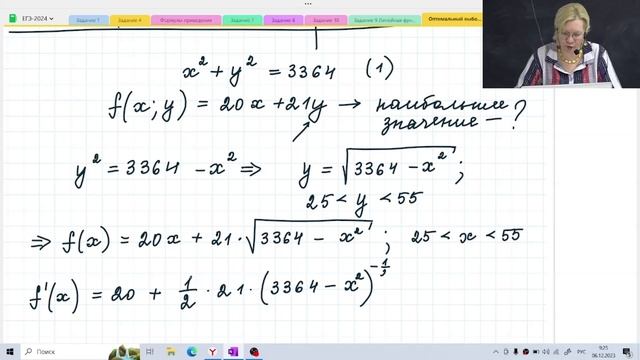 ЕГЭ-2024
Задание 1 Задание 4 Формулы приведения Задание 7 Задание 8 Задание 10 Задание 9 Линейные фун... Оптимальный выбо...
x² + y² = 3364 (1)
f(x; y) = 20x + 21y → наибольшее
значение — ?
y² = 3364 - x² ⇒ y = √(3364 - x²);
25 < y < 55
⇒ f(x) = 20x + 21·√(3364 - x²); 25 < x < 55
f'(x) = 20 + 1/2 · 21·(3364 - x²)
Поиск
РУС
9:25
06.12.2023